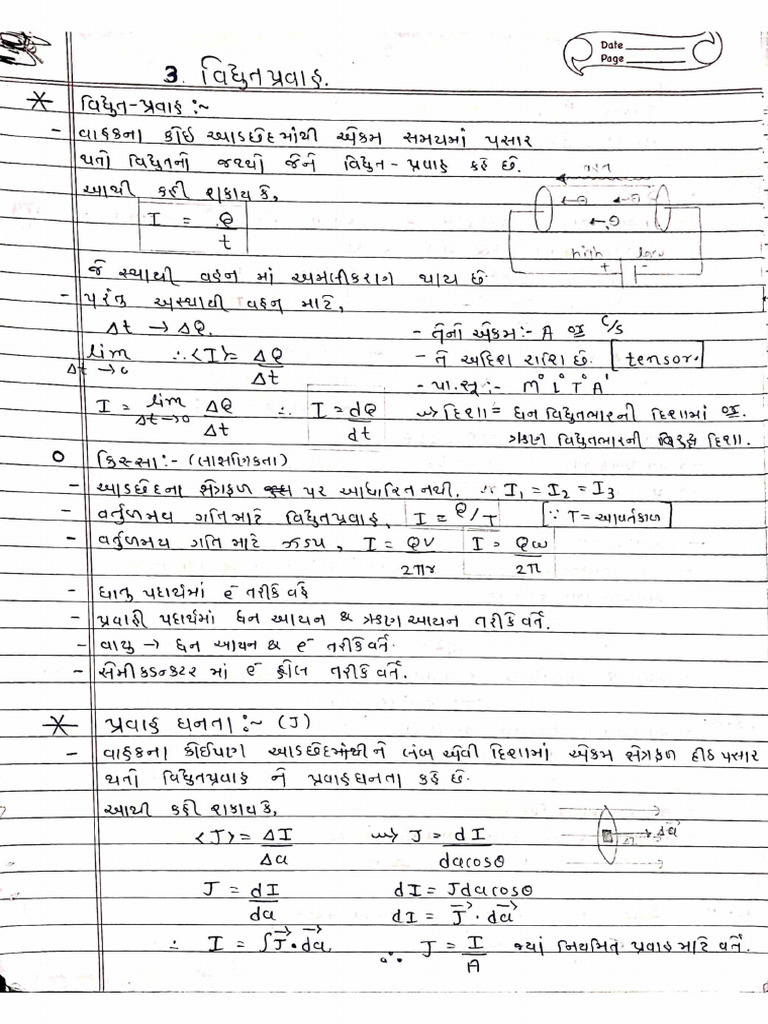 Date
Page
3. વિદ્યુતપ્રવાહ.
* વિદ્યુત-પ્રવાહ :~
- વાહકના કોઈ આડછેદમાંથી એકમ સમયમાં પસાર
થતો વિદ્યુતનો જથ્થો જેને વિદ્યુત-પ્રવાહ કહે છે.
આથી કહી શકાય કે,
I = Q/t
high low
+ -
જે સ્થાયી વહન માં અમલીકરણ થાય છે.
- પરંતુ અસ્થાયી વહન માટે,
Δt → ΔQ.
- તેનો એકમ:- A or C/s
lim Δt→0 ∴ <I> = ΔQ/Δt
- તે અદિશ રાશિ છે. [tensor.]
- પા.સૂ:- M⁰L⁰T⁰A¹
I = lim Δt→0 ΔQ/Δt ∴ I = dQ/dt
⇒ દિશા = ધન વિદ્યુતભારની દિશામાં or
ઋણ વિદ્યુતભારની વિરુદ્ધ દિશા.
o કિસ્સા:- (લાક્ષણિકતા)
- આડછેદના ક્ષેત્રફળ પર આધારિત નથી. ∴ I₁ = I₂ = I₃
- વર્તુળમય ગતિ માટે વિદ્યુતપ્રવાહ, I = Q/T [∵ T = આવર્તકાળ]
- વર્તુળમય ગતિ માટે ઝડપ, I = Qv/2πr I = Qω/2π
- ધાતુ પદાર્થમાં e⁻ તરીકે વર્તે
- પ્રવાહી પદાર્થમાં ધન આયન & ઋણ આયન તરીકે વર્તે.
- વાયુ → ધન આયન & e⁻ તરીકે વર્તે.
- સેમીકડન્કટર માં e⁻ હોલ તરીકે વર્તે.
* પ્રવાહ ઘનતા :~ (J)
- વાહકના કોઈપણ આડછેદમાંથીને લંબ એવી દિશામાં એકમ ક્ષેત્રફળ દીઠ પસાર
થતો વિદ્યુતપ્રવાહ ને પ્રવાહઘનતા કહે છે.
આથી કહી શકાય કે,
<J> = ΔI/Δa ⇒ J = dI/dacosθ
da⃗
J = dI/da dI = Jdacosθ
dI = J⃗ · da⃗
∴ I = ∫J⃗·da⃗ ∴ J = I/A જ્યાં નિયમિત પ્રવાહ માટે વર્તે.